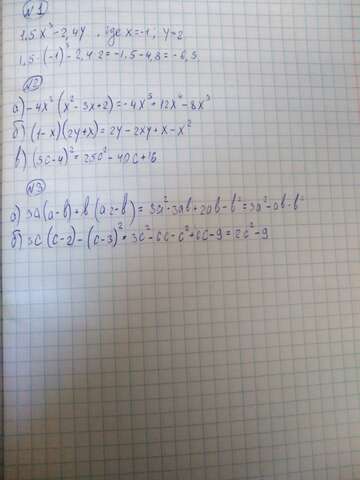 №1
1,5x³-2,4y, где x=-1; y=2
1,5·(-1)³-2,4·2=-1,5-4,8=-6,3.
№2
а)-4x³(x²-3x+2)=-4x⁵+12x⁴-8x³
б) (1-x)(2y+x)=2y-2xy+x-x²
в) (5c-4)²=25c²-40c+16
№3
а) 3a(a-b)+b(a2-b)=3a²-3ab+2ab-b²=3a²-ab-b²
б) 3c(c-2)-(c-3)²=3c²-6c-c²+6c-9=2c²-9